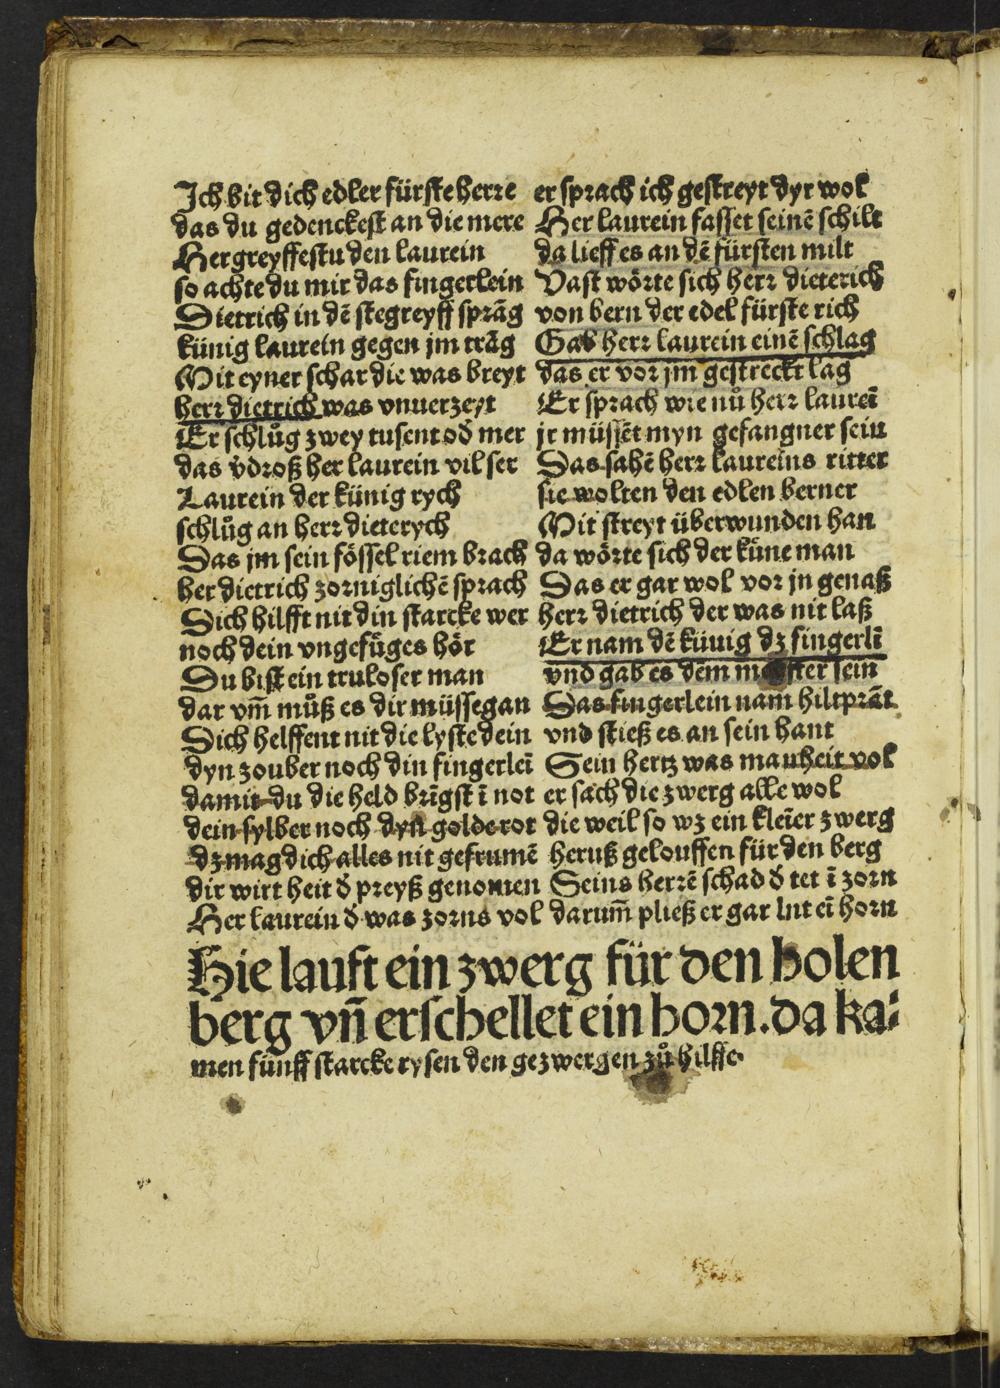 Ich bit dich edler fürste herre
das du gedenckest an die mere
Her greyffestu den laurein
so achte du mir das fingerlein
Dietrich in dẽ stegreyff sprãg
künig laurein gegen jm trãg
Mit eyner schar die was breyt
herr dietrich was vnuerzeyt
Er schlůg zwey tusent od mer
das v̄droß her laurein vil ser
Laurein der künig rych
schlůg an herr dieterych
Das jm sein fössel riem brach
her dietrich zorniglichẽ sprach
Dich hilfft nit din starcke wer
noch dein vngefüges hör
Du bist ein truloser man
dar vm̃ můß es dir müssegan
Dich helffent nit die lyste dein
dyn zouber noch din fingerlei̅
damit du die held bri̅gst i̅ not
dein sylber noch dyn golde rot
dz mag dich alles nit gefrumẽ
dir wirt heit d̄ preyß genomen
Her laurein d̄ was zorns vol
er sprach ich gestreyt dyr wol
Her laurein fasset seinẽ schilt
da lieff es an dẽ fürsten milt
Vast wörte sich herr dieterich
von bern der edel fürste rich
Gab herr laurein einẽ schlag
das er vor jm gestreckt lag
Er sprach wie nů herr laurei̅
jr müssẽt myn gefangner sein
Das sahẽ herr laureins ritter
sie wolten den edlen berner
Mit streyt überwunden han
da wörte sich der küne man
Das er gar wol vor jn genaß
herr dietrich der was nit laß
Er nam dẽ küuig dz fingerli̅
vnd gab es dem meyster sein
Das fingerlein nam hiltprãt
vnd stieß es an sein hant
Sein hertz was manheit vol
er sach die zwerg alle wol
die weil so wz ein klei̅er zwerg
heruß gelouffen für den berg
Seins herrẽ schad d̄ tet i̅ zorn
darum̃ pließ er gar lut ei̅ horn
Hie lauft ein zwerg für den holen
berg vñ erschellet ein horn. da ka⸗
men fünff starcke rysen den gezwergen zů hilffe.